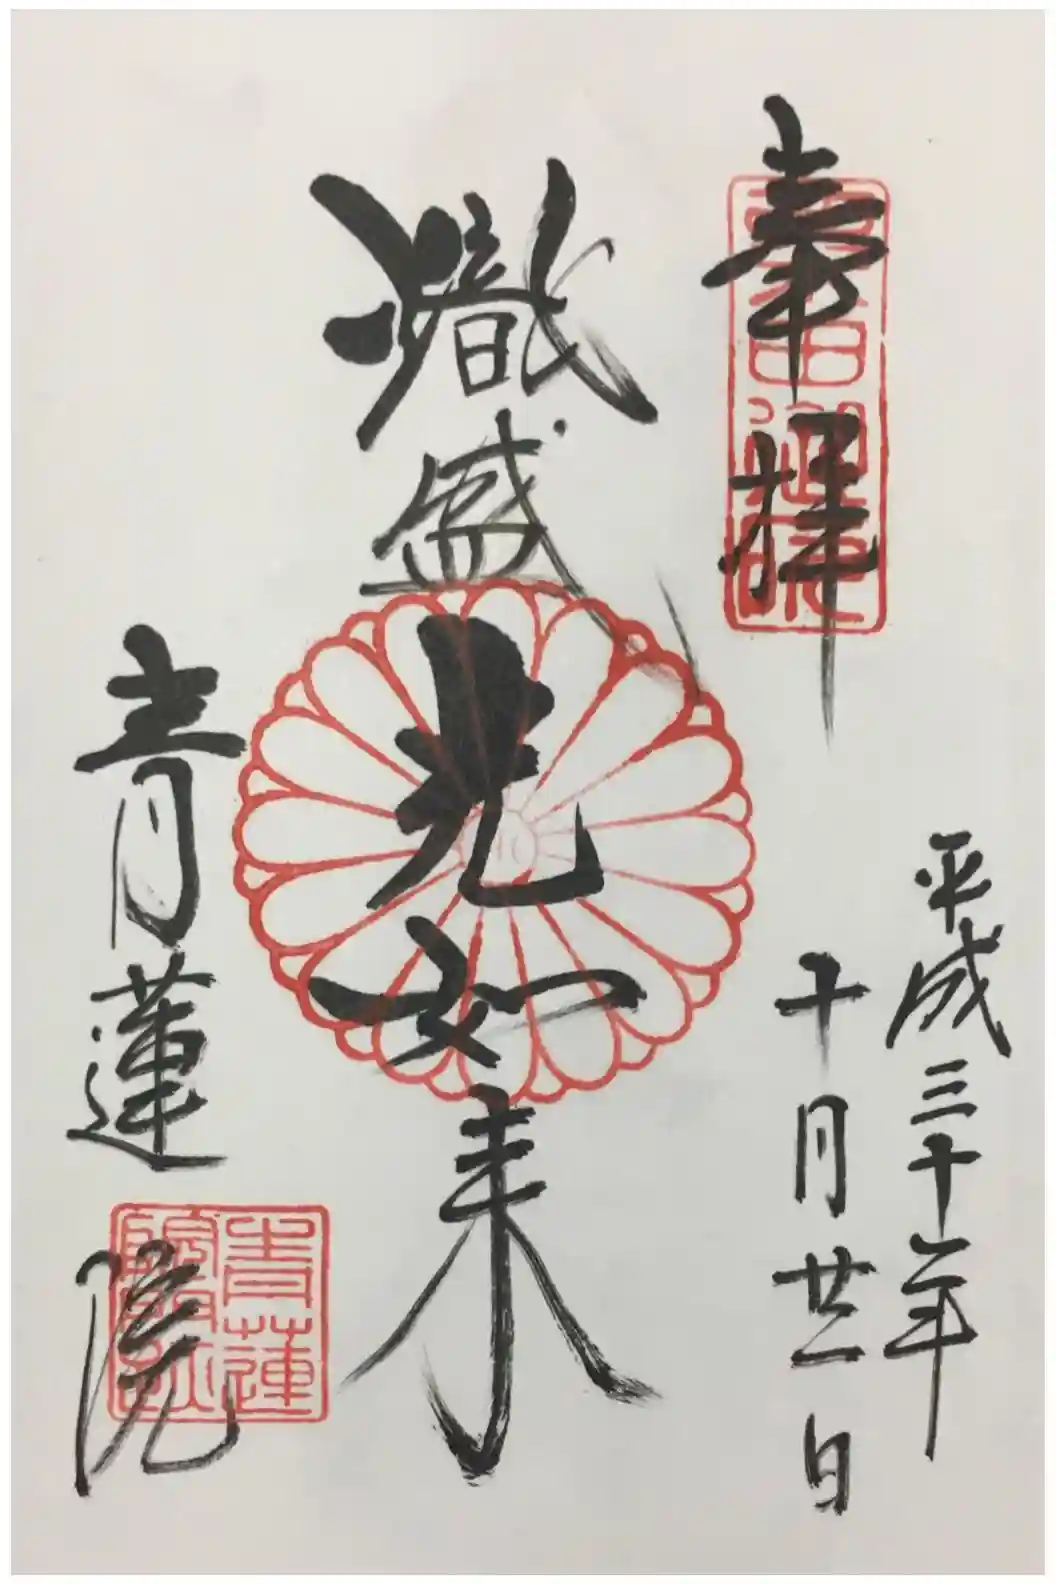 奉拝
平成三十年
十月廿一日
熾盛光如来
青蓮院
青蓮院門跡